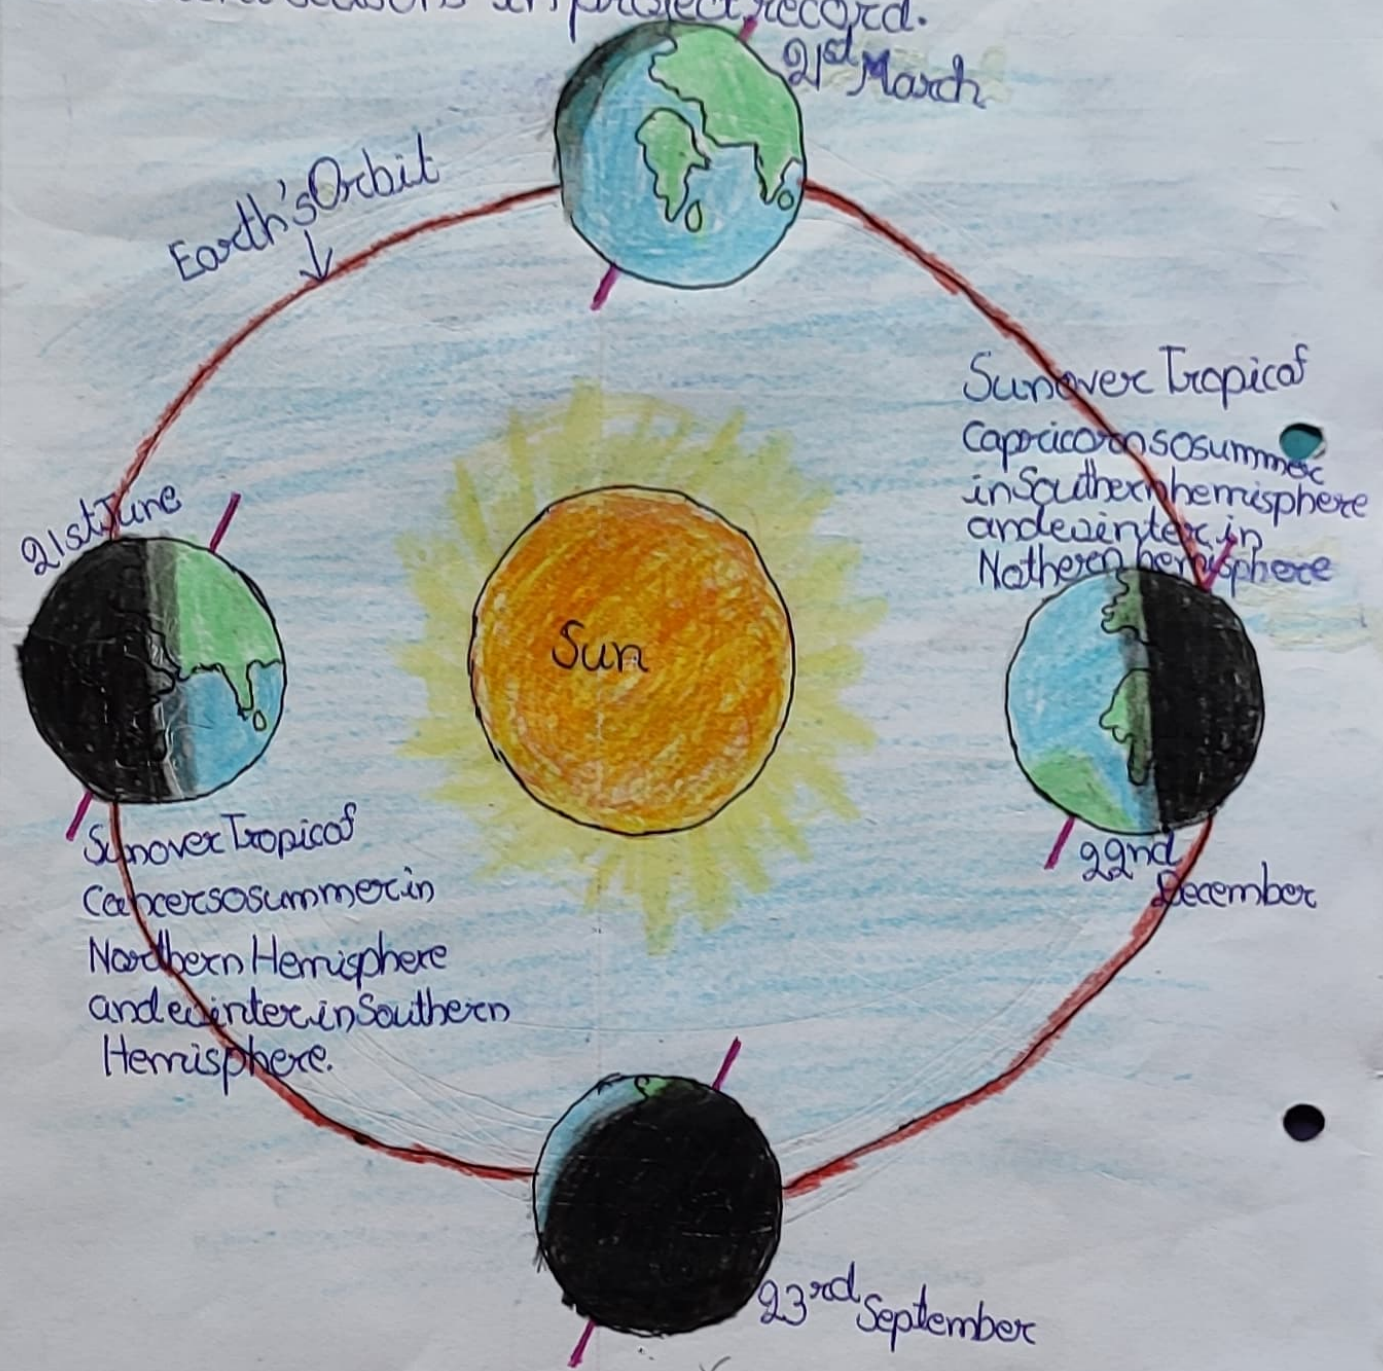 in project record.
21st March
Earth's Orbit
Sun over Tropic of
Capricorn so summer
in Southern hemisphere
and winter in
Nothern hemisphere
21st June
Sun
Sun over Tropic of
Cancer so summer in
Northern Hemisphere
and winter in Southern
Hemisphere.
22nd
December
23rd September